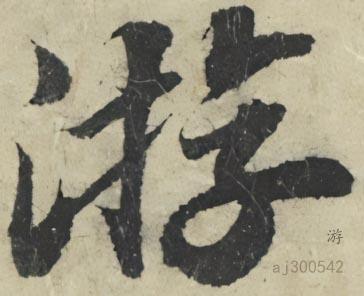 游
游
aj300542